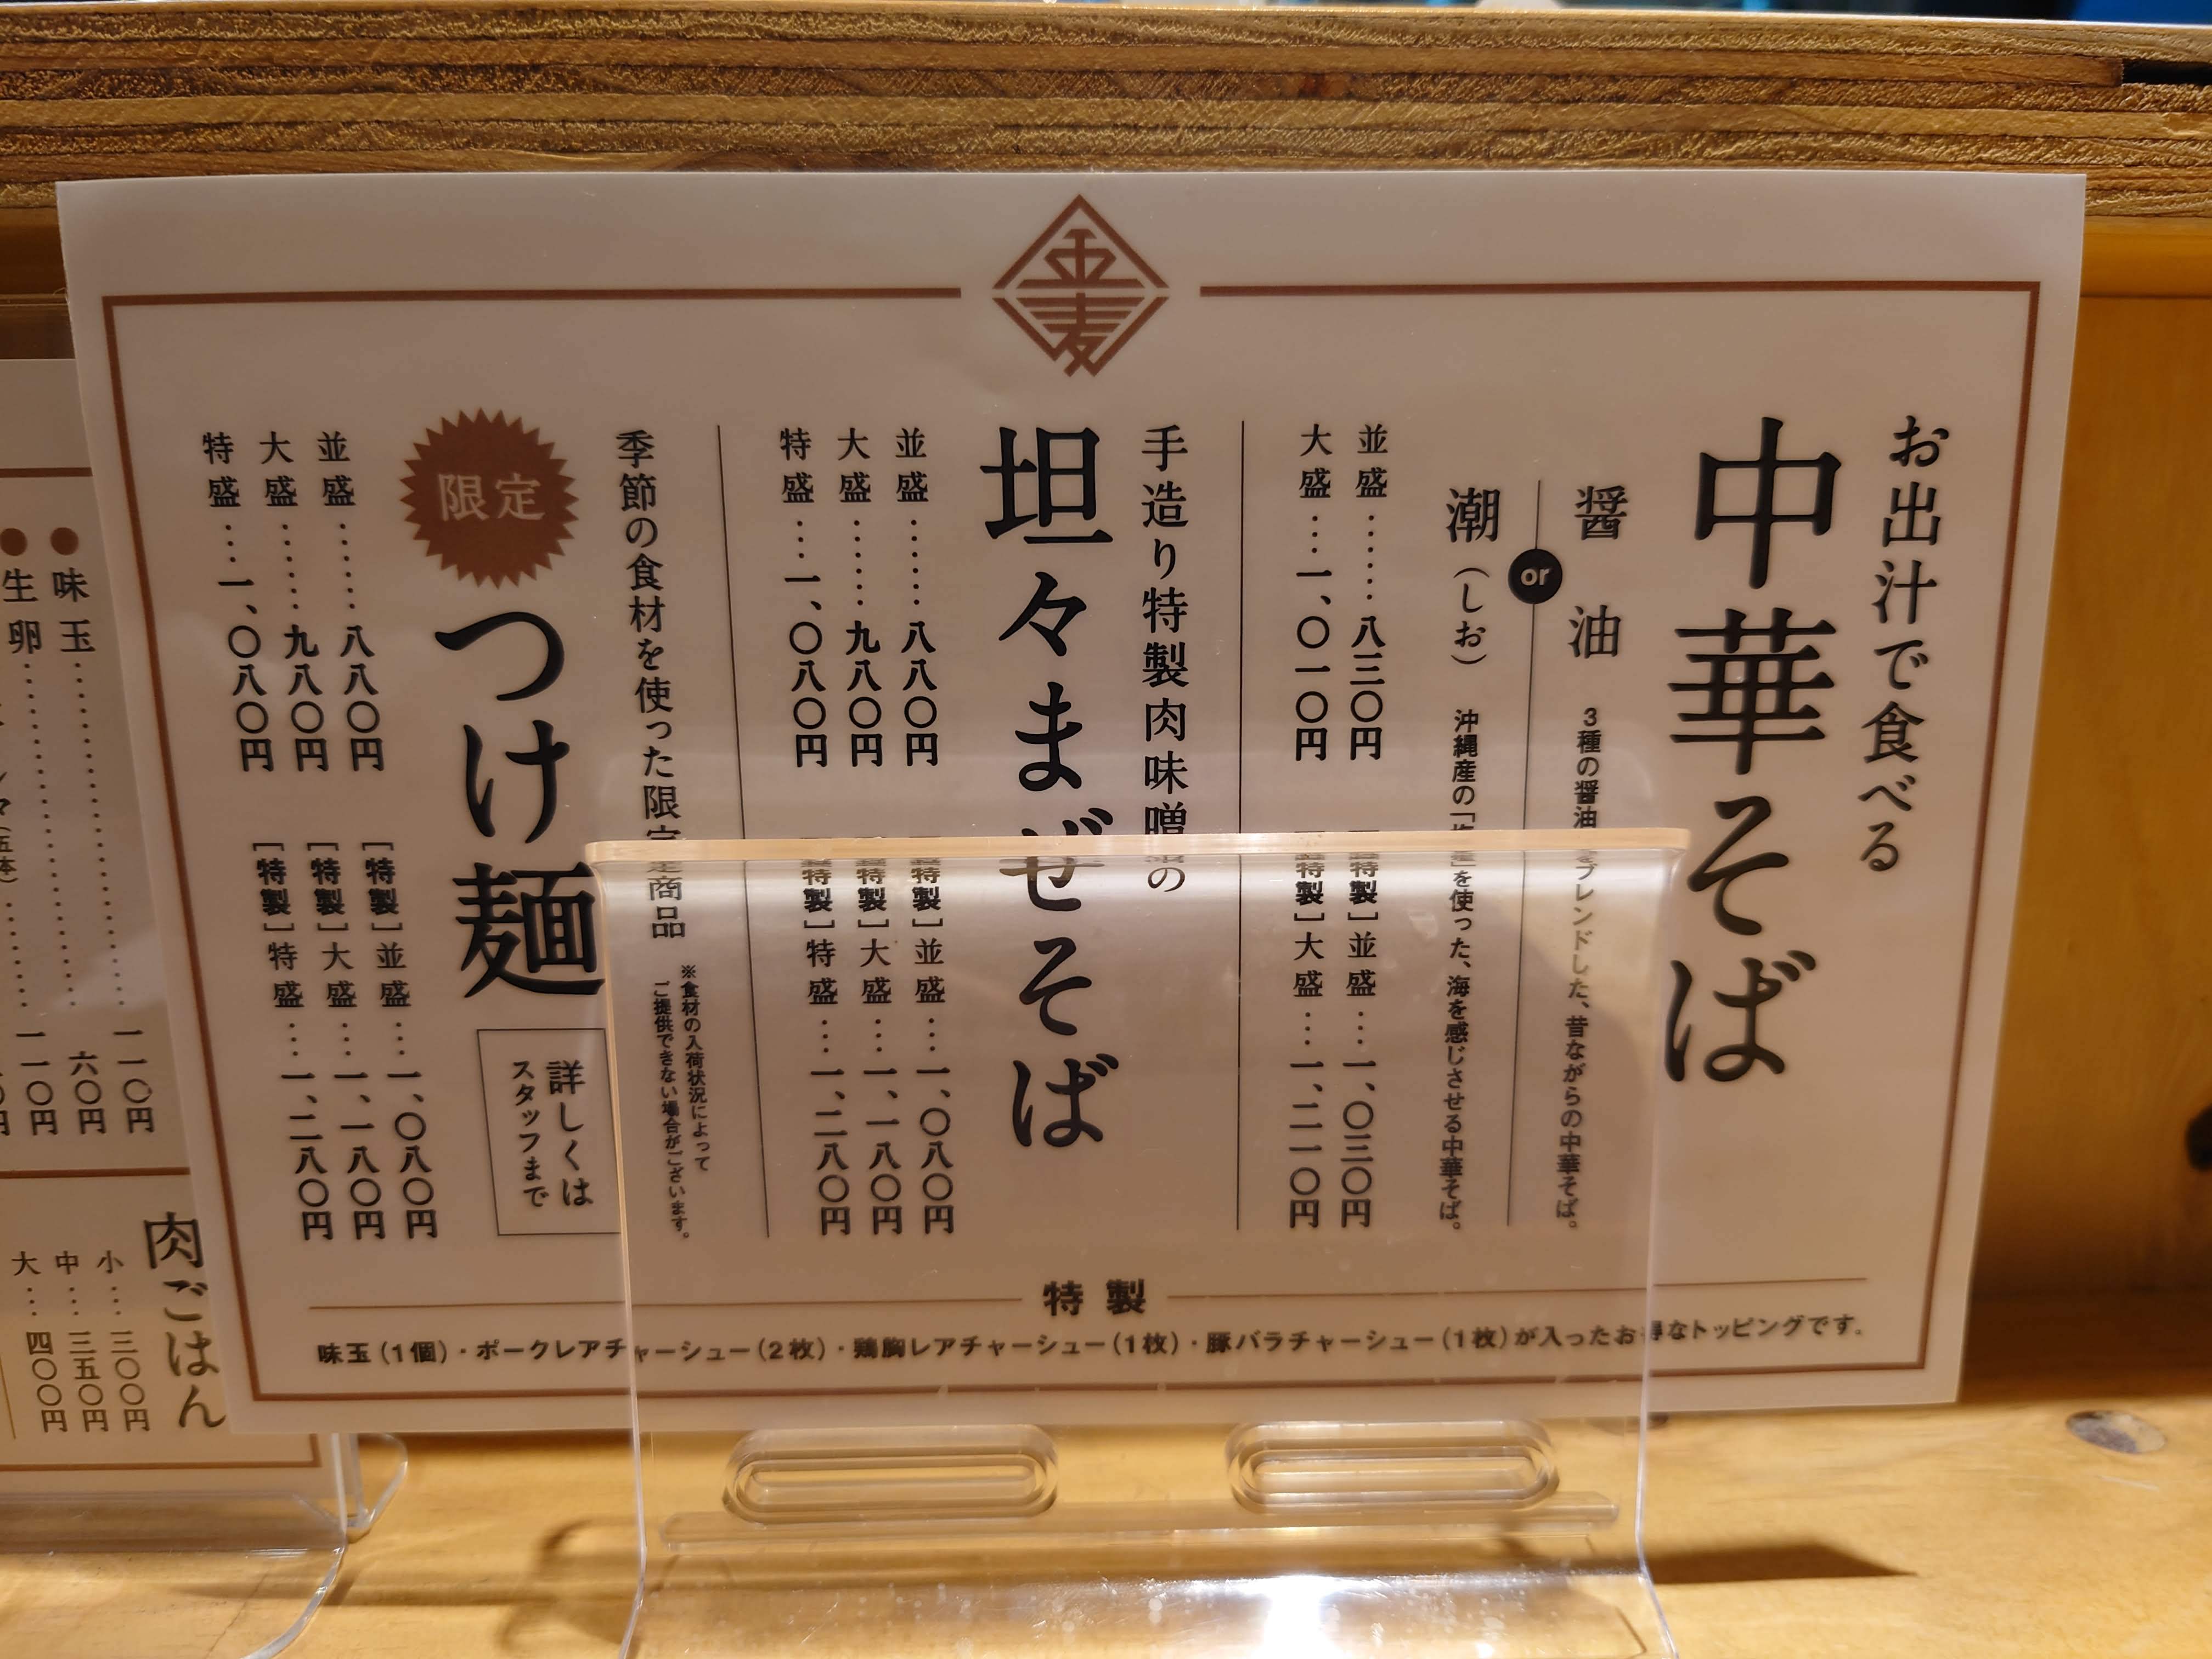 金麦
お出汁で食べる
中華そば
醤油
3種の醤油をブレンドした、昔ながらの中華そば。
or
潮（しお）
沖縄産の「塩」を使った、海を感じさせる中華そば。
並盛……八三〇円
大盛…一、〇一〇円
［特製］並盛…一、〇三〇円
［特製］大盛…一、二一〇円
手造り特製肉味噌の
坦々まぜそば
並盛……八八〇円
大盛……九八〇円
特盛…一、〇八〇円
［特製］並盛…一、〇八〇円
［特製］大盛…一、一八〇円
［特製］特盛…一、二八〇円
季節の食材を使った限定商品
※食材の入荷状況によって
ご提供できない場合がございます。
限定
つけ麺
詳しくは
スタッフまで
並盛……八八〇円
大盛……九八〇円
特盛…一、〇八〇円
［特製］並盛…一、〇八〇円
［特製］大盛…一、一八〇円
［特製］特盛…一、二八〇円
特製
味玉（1個）・ポークレアチャーシュー（2枚）・鶏胸レアチャーシュー（1枚）・豚バラチャーシュー（1枚）が入ったお得なトッピングです。
一一〇円
●味玉
六〇円
●生卵
一一〇円
肉ごはん
小…三〇〇円
中…三五〇円
大…四〇〇円